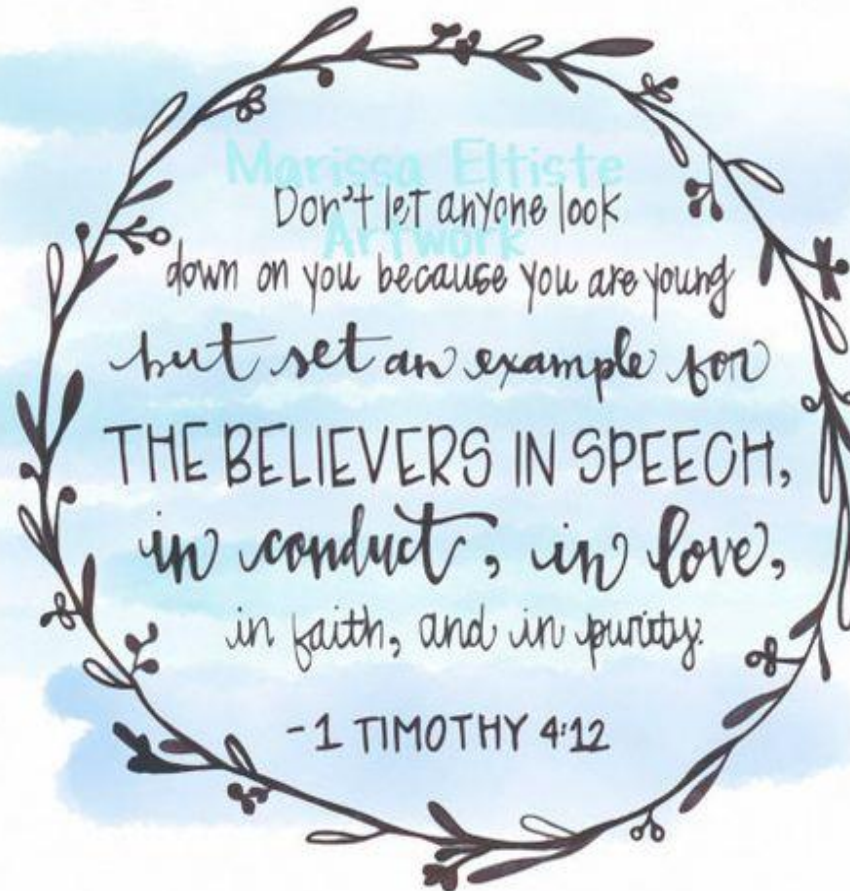 Marissa Eltiste
Don't let anyone look
Artwork
down on you because you are young
but set an example for
THE BELIEVERS IN SPEECH,
in conduct, in love,
in faith, and in purity.
-1 TIMOTHY 4:12